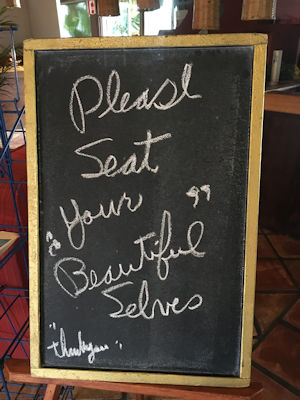 Please
Seat
"Your"
Beautiful
Selves
"thankyou"